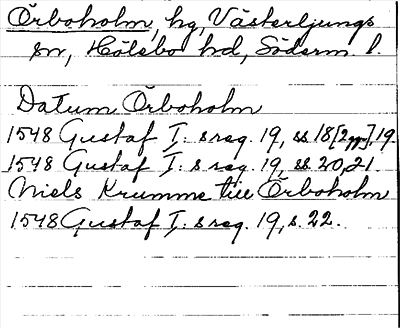 Örboholm, hg, Västerljungs
sn, Hölebo hd, Söderm. l.
Datum Örboholm
1548 Gustaf I: s reg. 19, ss 18 [2 ggr], 19.
1548 Gustaf I: s reg. 19, ss. 20, 21
Niels Krumme till Örboholm
1548 Gustaf I: s reg. 19, s. 22.